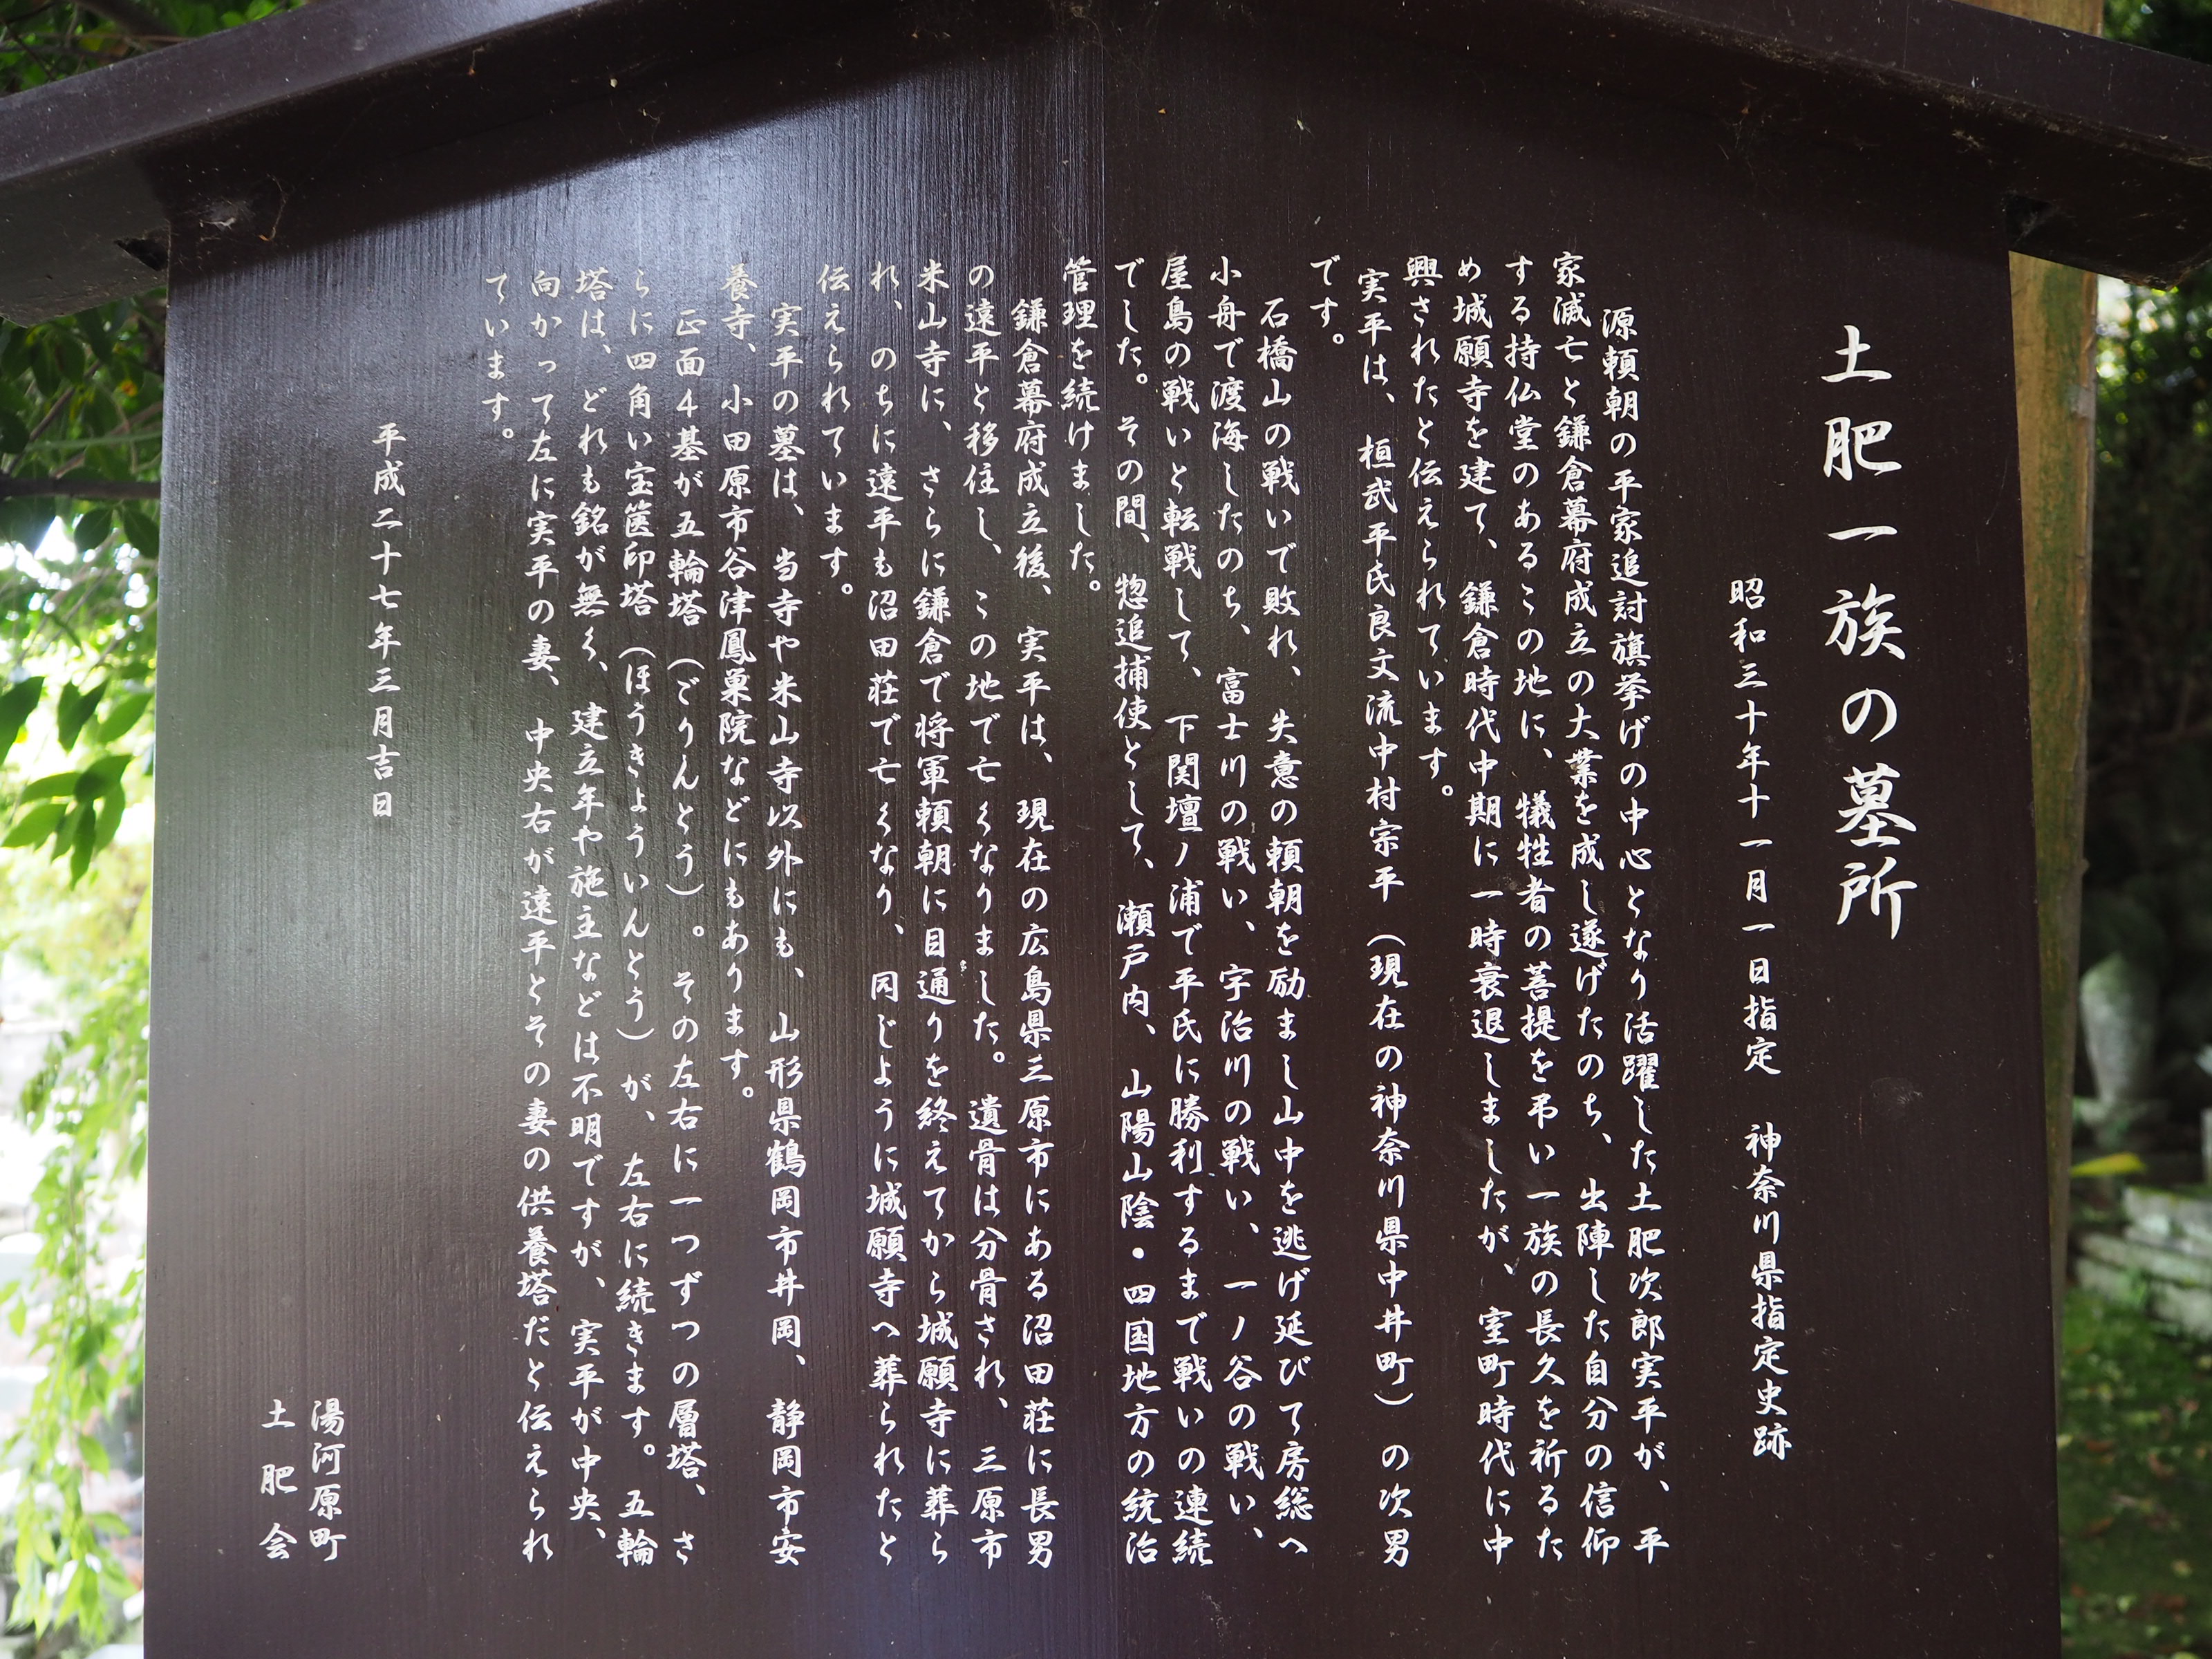 土肥一族の墓所
昭和三十年十一月一日指定　神奈川県指定史跡
源頼朝の平家追討旗挙げの中心となり活躍した土肥次郎実平が、平
家滅亡と鎌倉幕府成立の大業を成し遂げたのち、出陣した自分の信仰
する持仏堂のあるこの地に、犠牲者の菩提を弔い一族の長久を祈るた
め城願寺を建て、鎌倉時代中期に一時衰退しましたが、室町時代に中
興されたと伝えられています。
実平は、桓武平氏良文流中村宗平（現在の神奈川県中井町）の次男
です。
石橋山の戦いで敗れ、失意の頼朝を励まし山中を逃げ延びて房総へ
小舟で渡海したのち、富士川の戦い、宇治川の戦い、一ノ谷の戦い、
屋島の戦いと転戦して、下関壇ノ浦で平氏に勝利するまで戦いの連続
でした。その間、惣追捕使として、瀬戸内、山陽山陰・四国地方の統治
管理を続けました。
鎌倉幕府成立後、実平は、現在の広島県三原市にある沼田荘に長男
の遠平と移住し、この地で亡くなりました。遺骨は分骨され、三原市
米山寺に、さらに鎌倉で将軍頼朝に目通りを終えてから城願寺に葬ら
れ、のちに遠平も沼田荘で亡くなり、同じように城願寺へ葬られたと
伝えられています。
実平の墓は、当寺や米山寺以外にも、山形県鶴岡市井岡、静岡市安
養寺、小田原市谷津鳳巣院などにもあります。
正面４基が五輪塔（ごりんとう）。その左右に一つずつの層塔、さ
らに四角い宝篋印塔（ほうきょういんとう）が、左右に続きます。五輪
塔は、どれも銘が無く、建立年や施主などは不明ですが、実平が中央、
向かって左に実平の妻、中央右が遠平とその妻の供養塔だと伝えられ
ています。
平成二十七年三月吉日
湯河原町
土肥会